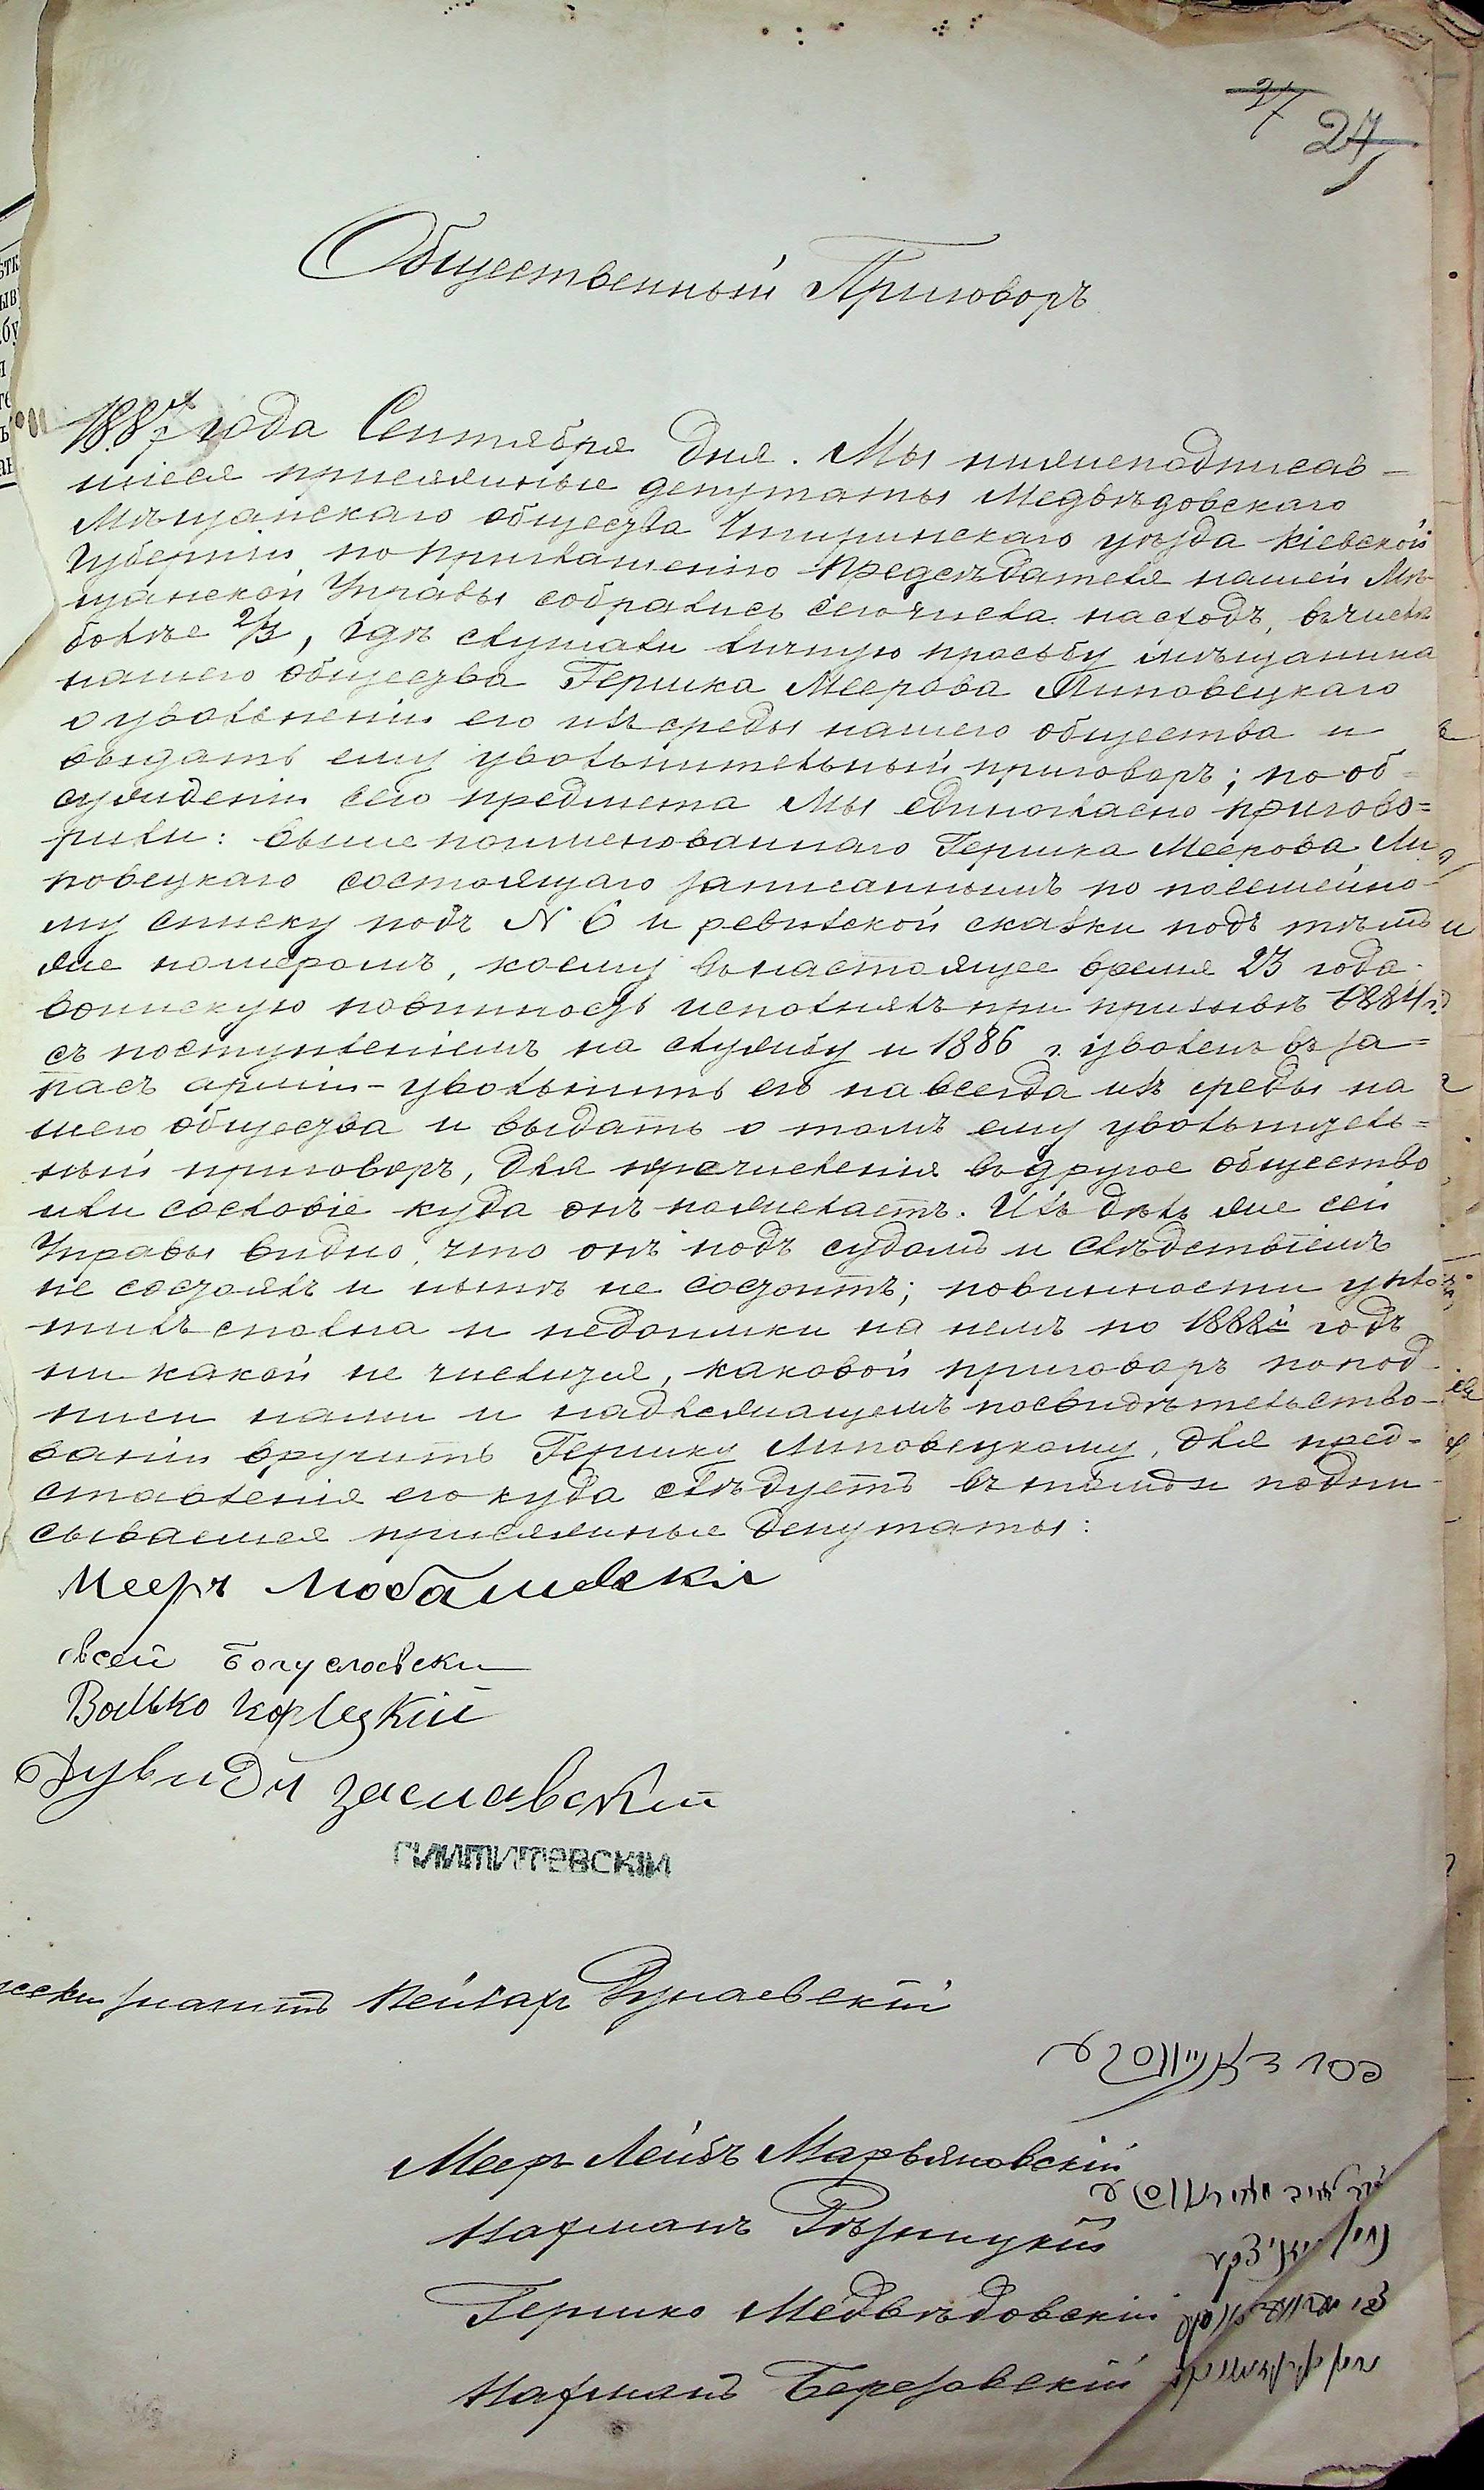 27 27
Общественный Приговоръ
1887 года Сентября дня. Мы нижеподписав-
шіеся присяжные депутаты Медвѣдовскаго
Мѣщанскаго общества Чигиринскаго уѣзда Кіевской
Губерніи по приглашенію Предсѣдателя нашей Мѣ-
щанской Управы собрались сего числа на сходъ, въ числѣ
болѣе 2/3, гдѣ слушали личную просьбу мѣщанина
нашего общества Гершка Меерова Липовецкаго
о увольненіи его изъ среды нашего общества и
выдать ему увольнительный приговоръ; по об=
сужденіи сего предмета Мы единогласно пригово=
рили: выше поименованнаго Гершка Меерова Ли
повецкаго состоящаго записаннымъ по посемейно-
му списку подъ N 6 и ревизской сказки подъ тѣмъ
же номеромъ, коему въ настоящее время 23 года
воинскую повинность исполнялъ при призывѣ 1884 г.
съ поступленіемъ на службу и 1886 г. уволенъ въ за=
пасъ арміи - увольнить его на всегда изъ среды на
шего общества и выдать о томъ ему увольнитель=
ный приговоръ, для причисленія въ другое общество
или сословіе куда онъ пожелаетъ. Изъ дѣлъ же сей
Управы видно, что онъ подъ судомъ и слѣдствіемъ
не состоялъ и нынѣ не состоитъ; повинности упла
тилъ сполна и недоимки на немъ по 1888й годъ
ни какой не числится, каковой приговоръ по под-
писи нами и надлежащемъ посвидѣтельство-
ваніи вручить Гершку Липовецкому, для пред-
ставленія его куда слѣдуетъ въ томъ и подпи-
сываемся присяжные депутаты:
Мееръ Любашевскій
Овсей Богуславски
Волько Корецкій
Дувидъ Заславскій
Пейсахъ Дунаевскій
Меер Лейбъ Марьяновскій
Нахманъ Рѣзницкій
Гершко Медвѣдовскій
Нахманъ Березовскій